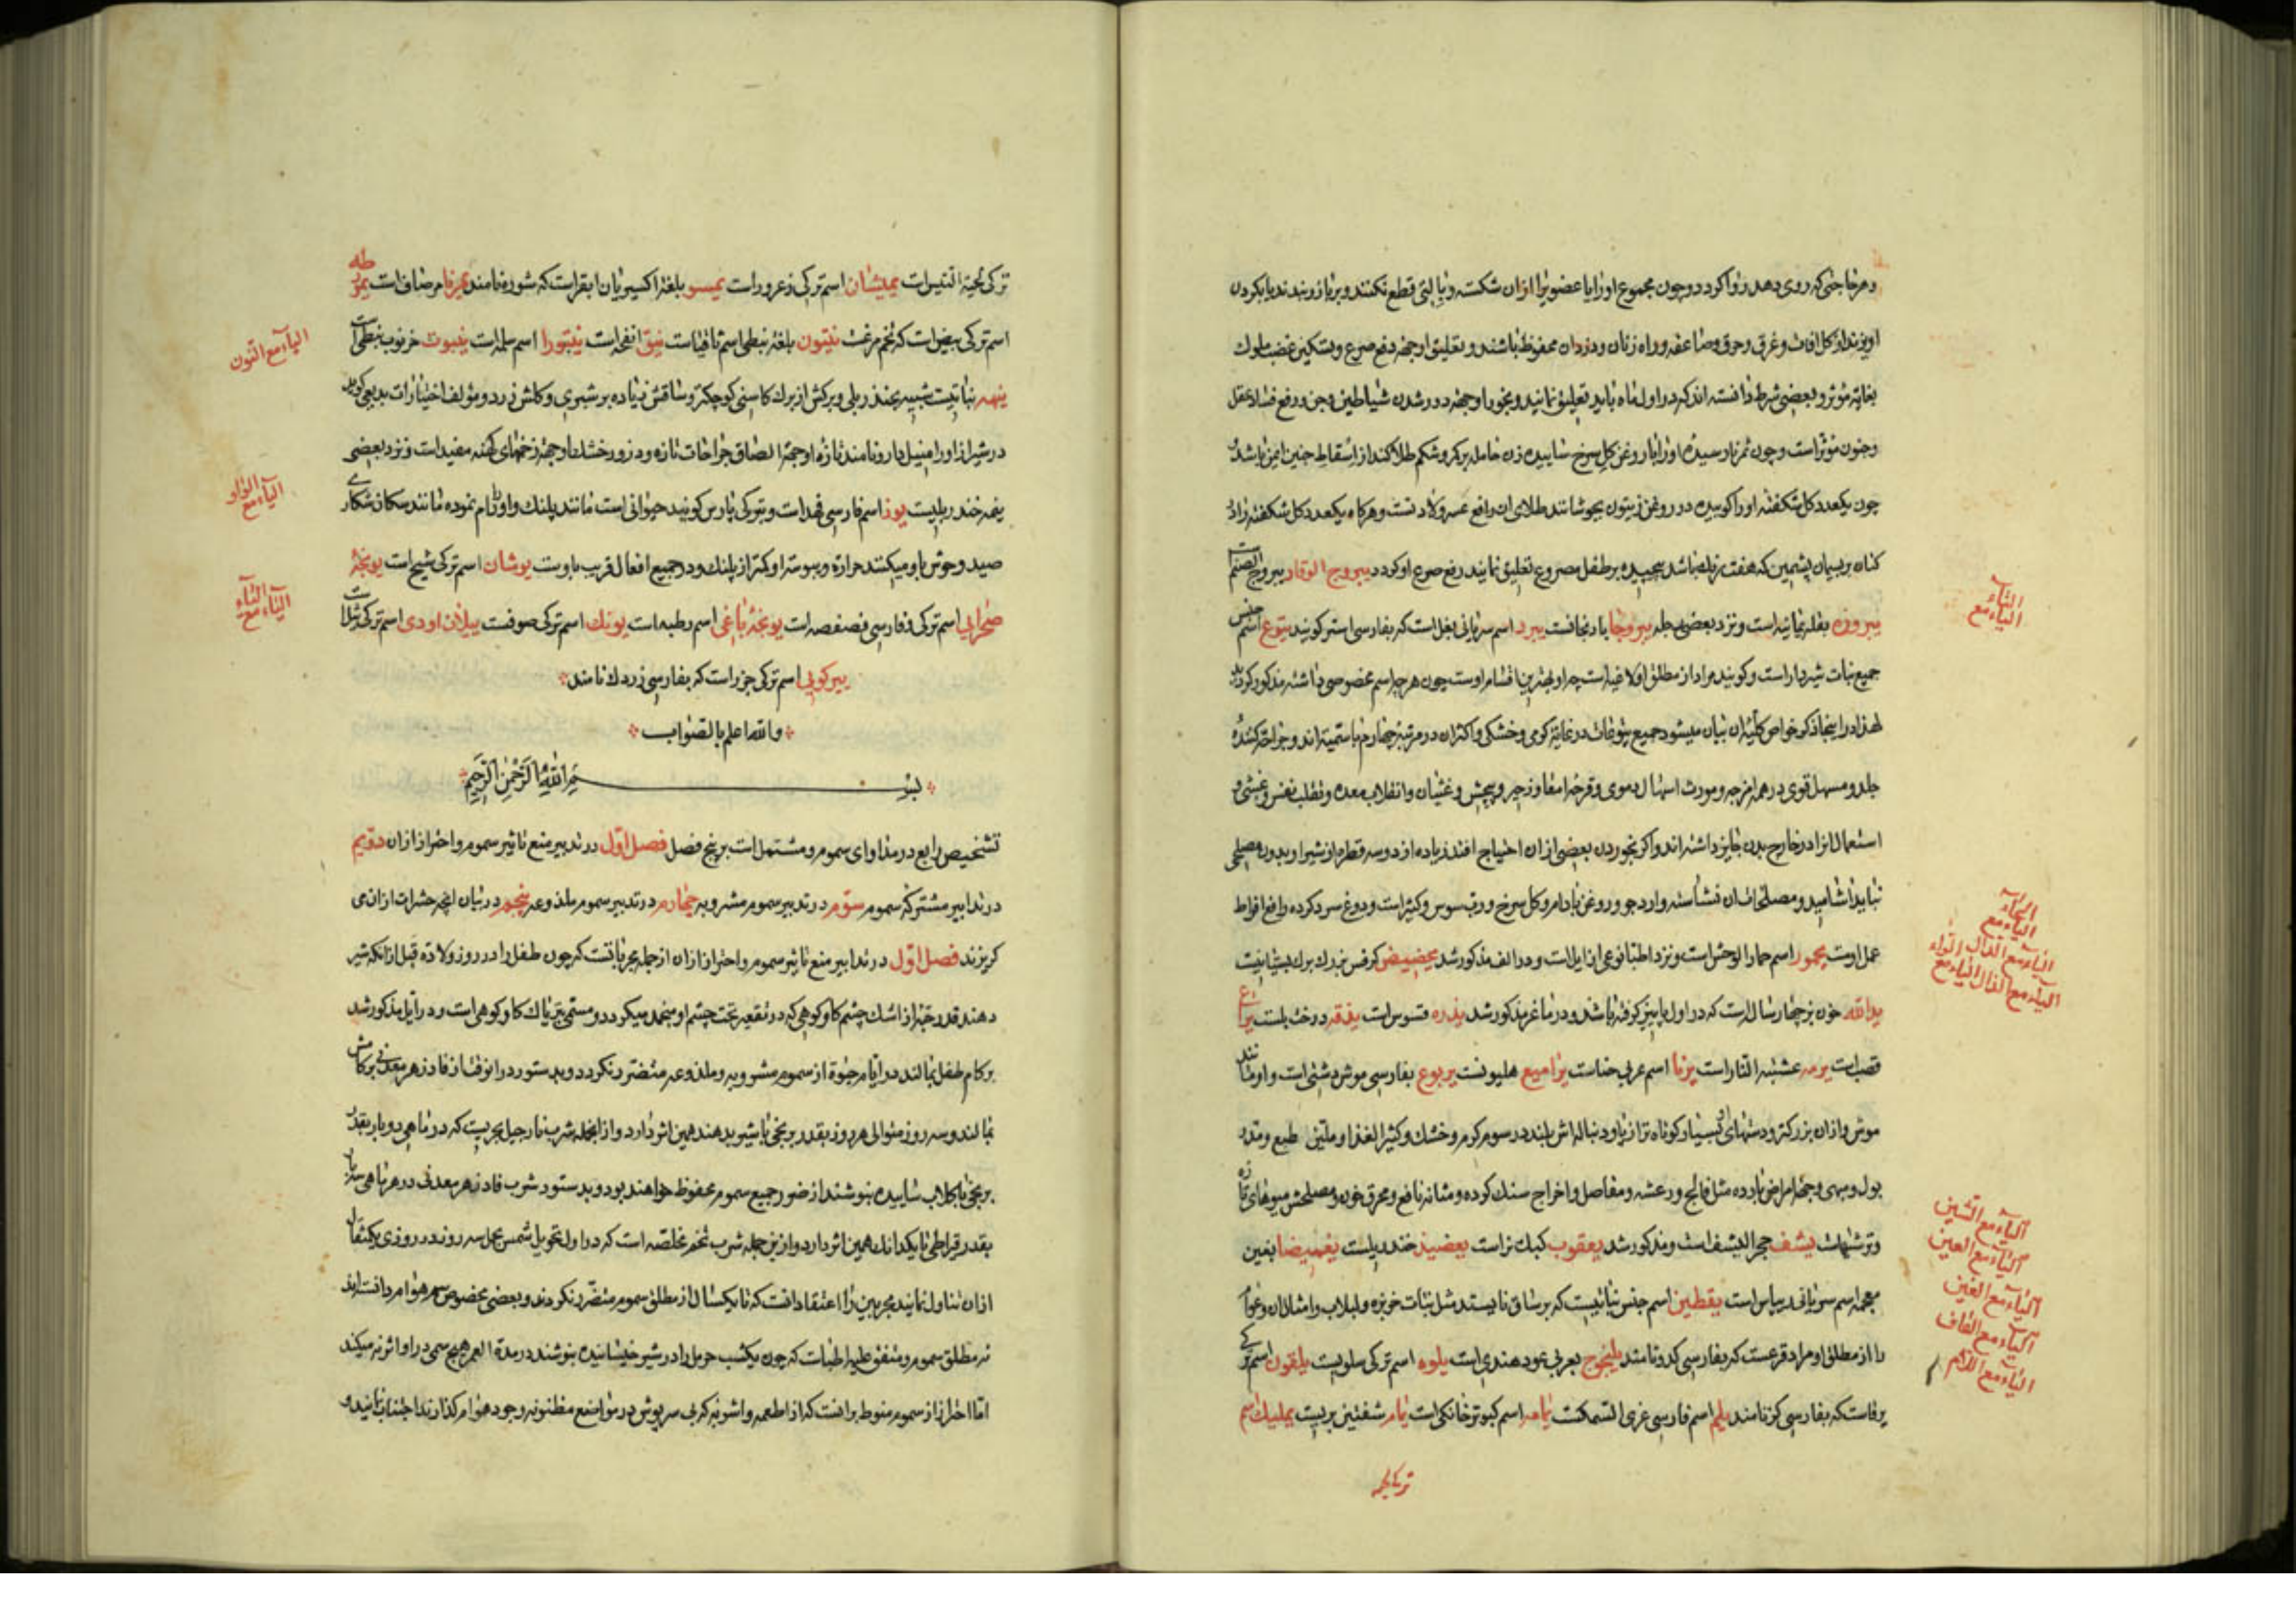 و هر حاجتی که روی دهد روا گردد و چون مجموع او را یا عضویرا ازان شکسته و با آلتی قطع نکنند و بر بازو بندند یا بگردن
اویزند از کل افات و غرق و حرق و صاعقه و راه زنان و دزدان محفوظ باشند و تعلیق او جهة دفع صرع و تسکین غضب ملوک
بغایة مؤثر و بعضی شرط دانسته اند که در اول ماه باید تعلیق نمایند و بخور او جهة دور شدن شیاطین و جن و رفع فساد عقل
و جنون مؤثر است و چون ثمر نارسیده او را با روغن کل سرخ ساییده زن حامله بر کمر و شکم طلا کند از اسقاط جنین ایمن باشد و
چون یکعدد کل شکفته او را کوبیده در روغن زیتون بجوشانند طلای ان رافع عسر ولادتست و هرکاه یکعدد کل شکفته را در
کتان بریسمان پشمین که هفت رنک باشد پیچیده بر طفل مصروع تعلیق نمایند رفع صرع او کردد یبروج الوقاد یبروج الصنم است
یبروزه بقله یمانیه است و نزد بعضی جله یبروحا بادرنجانست یبرد اسم سریانی بغل است که بفارسی استر کویند یتوع اسم جنس
جمیع نبات شیردار است و کویند مراد از مطلق او لاغیه است چه او بهترین اقسام اوست چون هر چه اسم مخصوصی داشته مذکور کردید
لهذا در اینجا ذکر خواص کلیهٔ ان بیان میشود جمیع یتوعات در غایة کرمی و خشکی و اکثر ان در مرتبه چهارم با سمیة اند و جراحة کننده
جلد و مسهل قوی در همه امزجه و مورث اسهال دموی و قرحه امعا و زحیر و پیچش و غثیان و انقلاب معده و تقلب نفس و غشی و
استعمال انرا در خارج بدن جایز داشته اند و اکر بخوردن بعضی از ان احتیاج افتد زیاده از دو سه قطره از شیر او بدون مصلحی
نباید اشامید و مصلح اکثر ان نشاسته و ارد جو و روغن بادام و کل سرخ و رب سوس و کثیرا است و دوغ سرد کرده رافع افراط
عمل اوست یحمور اسم حمار الوحش است و نزد اطبا نوعی از ایل است و در الف مذکور شد یخضیض کرفس بزرک برک بستانیست
یدالله خون بز چهار ساله است که در اول پاییز کرفته باشند و در ماعز مذکور شد یذره قسوس است یذقه درخت بلست یراع
قصب است یرمه عشبة النار است یرنا اسم عربی حناست یرامیع هلیونست یربوع بفارسی موش دشتی است و او مانند
موش و ازان بزرکتر و دستهای او بسیار کوتاه تر از پا و دنباله اش بلند در سوم کرم و خشک و کثیر الغذا و ملین طبع و مدر
بول و مبهی و جهة امراض بارده مثل فالج و رعشه و مفاصل و اخراج سنک کرده و مثانه نافع و محرق خون و مصلحش میوهای تازه
و ترشیهاست یشف حجر الیشف است و مذکور شد یعقوب کبک نر است یعضید خندریلست یغمیضا بغین
معجمه اسم سریانی ریباس است یقطین اسم جنس نباتیست که بر ساق نایستد مثل نبات خربزه و لبلاب و امثال ان و عوام
را از مطلق او مراد قرعست که بفارسی کدو نامند یلنجوج بعربی عود هندی است یلوه اسم ترکی سلویست یلقون اسم ترکی
یرفاست که بفارسی کز نامند یلم اسم فارسی غری السمکست یمامه اسم کبوتر خانکی است یمام شفنین بریست یملیک اسم
ترکی لحیه
الیاء مع التاء
الیاء مع الحاء
الیاء مع الدال الیاء مع الراء
الیاء مع الذال
الیاء مع الشین
الیاء مع العین
الیاء مع الغین
الیاء مع القاف
الیاء مع اللام
ترکی لحیة التیس است یمیشان اسم ترکی زعرور است یمسو بلغة اکسیریان ابقر است که شوره نامند یمرنا مرصاف است یمرطه
اسم ترکی بیض است که تخم مرغست ینتون بلغة نبطی اسم ثافسیاست ینق انفحه است ینبتورا اسم سلمه است ینبوت خرنوب نبطی است
ینمه نباتیست شبیه بخندریلی و برکش از برک کاسنی کوچکتر و ساقش زیاده بر شبری و کلش زرد و مؤلف اختیارات بدیعی کوید
در شیراز او را منیل دارو نامند تازه او جهة الصاق جراحات تازه و ذرور خشک او جهة زخمهای کهنه مفید است و نزد بعضی
ینمه خندریلیست یوز اسم فارسی فهد است و بترکی پارس کویند حیوانی است مانند پلنک و او را رام نموده مانند سکان شکاری
صید وحوش باو میکنند حرارة و یبوسة او کمتر از پلنک و در جمیع افعال قریب باوست یوشان اسم ترکی شیح است یونجهٔ
صحرایی اسم ترکی و فارسی فصفصه است یونجهٔ باغی اسم رطبه است یونک اسم ترکی صوفست ییلان اودی اسم ترکی ثیلست
ییرکوبی اسم ترکی جزر است که بفارسی زردک نامند
والله اعلم بالصواب
بسم الله الرحمن الرحیم
تشخیص رابع در مداوای سموم و مشتملست بر پنج فصل فصل اول در تدبیر منع تاثیر سموم و احتراز ازان دویم
در تدابیر مشترکهٔ سموم سوم در تدبیر سموم مشروبه چهارم در تدبیر سموم ملذوعه پنجم در بیان انچه حشرات ازان می
کریزند فصل اول در تدابیر منع تاثیر سموم و احتراز ازان از جمله مجرباتست که چون طفل را در روز ولادة قبل ازانکه شیر
دهند قدر حبه از اشک چشم کاو کوهی که در نقعیه تحت چشم او منجمد میکردد و مسمی بتریاک کاو کوهی است و در ایل مذکور شد
بر کام طفل بمالند در ایام حیوة از سموم مشروبه و ملذوعه متضرر نکردد و بدستور در انوقت از فادزهر معدنی بر کامش
بمالند و سه روز متوالی هر روز بقدر برنجی با شیر بدهند همین اثر دارد و از انجمله شرب نارجیل بحریست که در ماهی دو بار بقدر
برنجی با کلاب ساییده بنوشند از ضرر جمیع سموم محفوظ خواهند بود و بدستور شرب فادزهر معدنی در هر ماهی سه بار
بقدر قیراطی تا یکدانک همین اثر دارد و ازین جمله شرب تخم مخلصه است که در اول تحویل شمس بحمل سه روز در روزی یکمثقال
ازان تناول نمایند مجربین را اعتقاد انست که تا یکسال از مطلق سموم متضرر نکردند و بعضی مخصوص سم هوام دانسته اند
نه مطلق سموم و متفق علیه اطباست که چون یکشب حرمل را در شیر خیسانیده بنوشند در مدة العمر هیچ سمی در او اثر نمیکند
اما احتراز از سموم منوط برانست که از اطعمه و اشربه که بی سرپوش در مواضع مظنونه وجود هوام کذارند اجتناب نمایند و
الیاء مع النون
الیاء مع الواو
الیاء مع الیاء